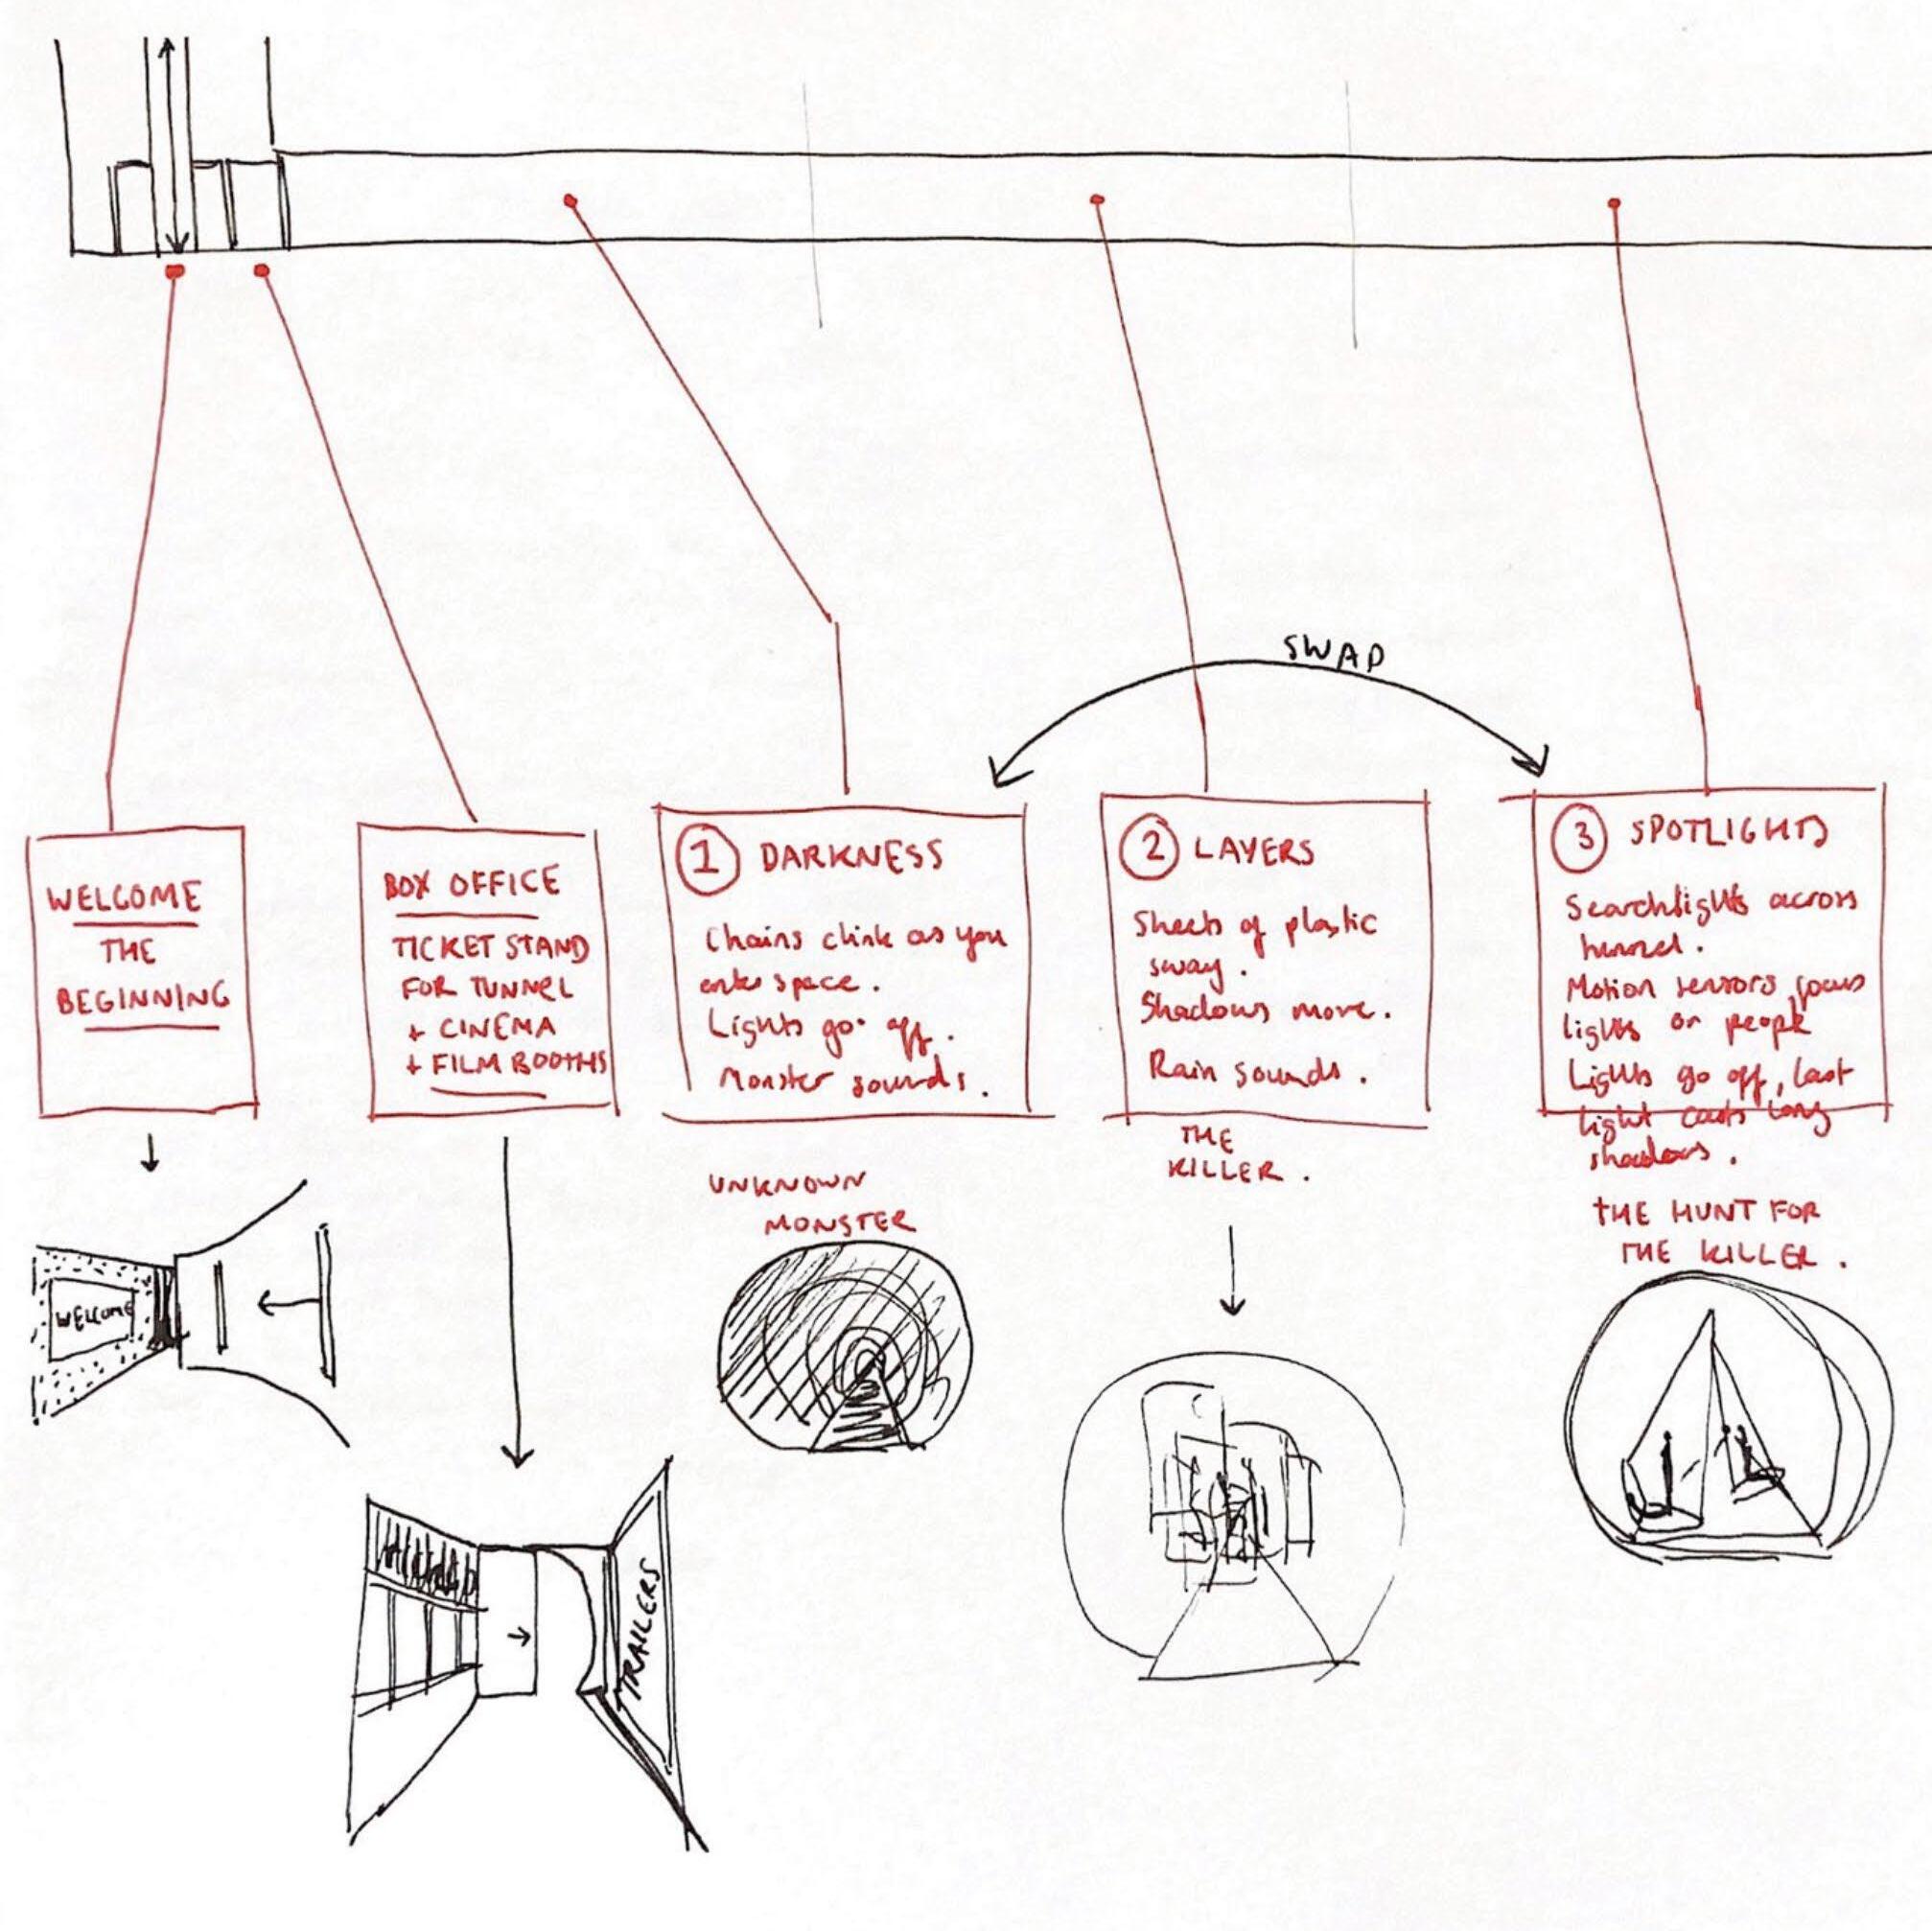 SWAP
WELCOME
THE
BEGINNING
BOX OFFICE
TICKET STAND
FOR TUNNEL
+ CINEMA
+ FILM BOOTHS
1 DARKNESS
Chains clink as you
enter space.
Lights go off.
Monster sounds.
UNKNOWN
MONSTER
2 LAYERS
Sheets of plastic
sway.
Shadows move.
Rain sounds.
THE
KILLER.
3 SPOTLIGHTS
Searchlights across
tunnel.
Motion sensors focus
lights on people
Lights go off, last
light casts long
shadows.
THE HUNT FOR
THE KILLER.
WELCOME
TRAILERS